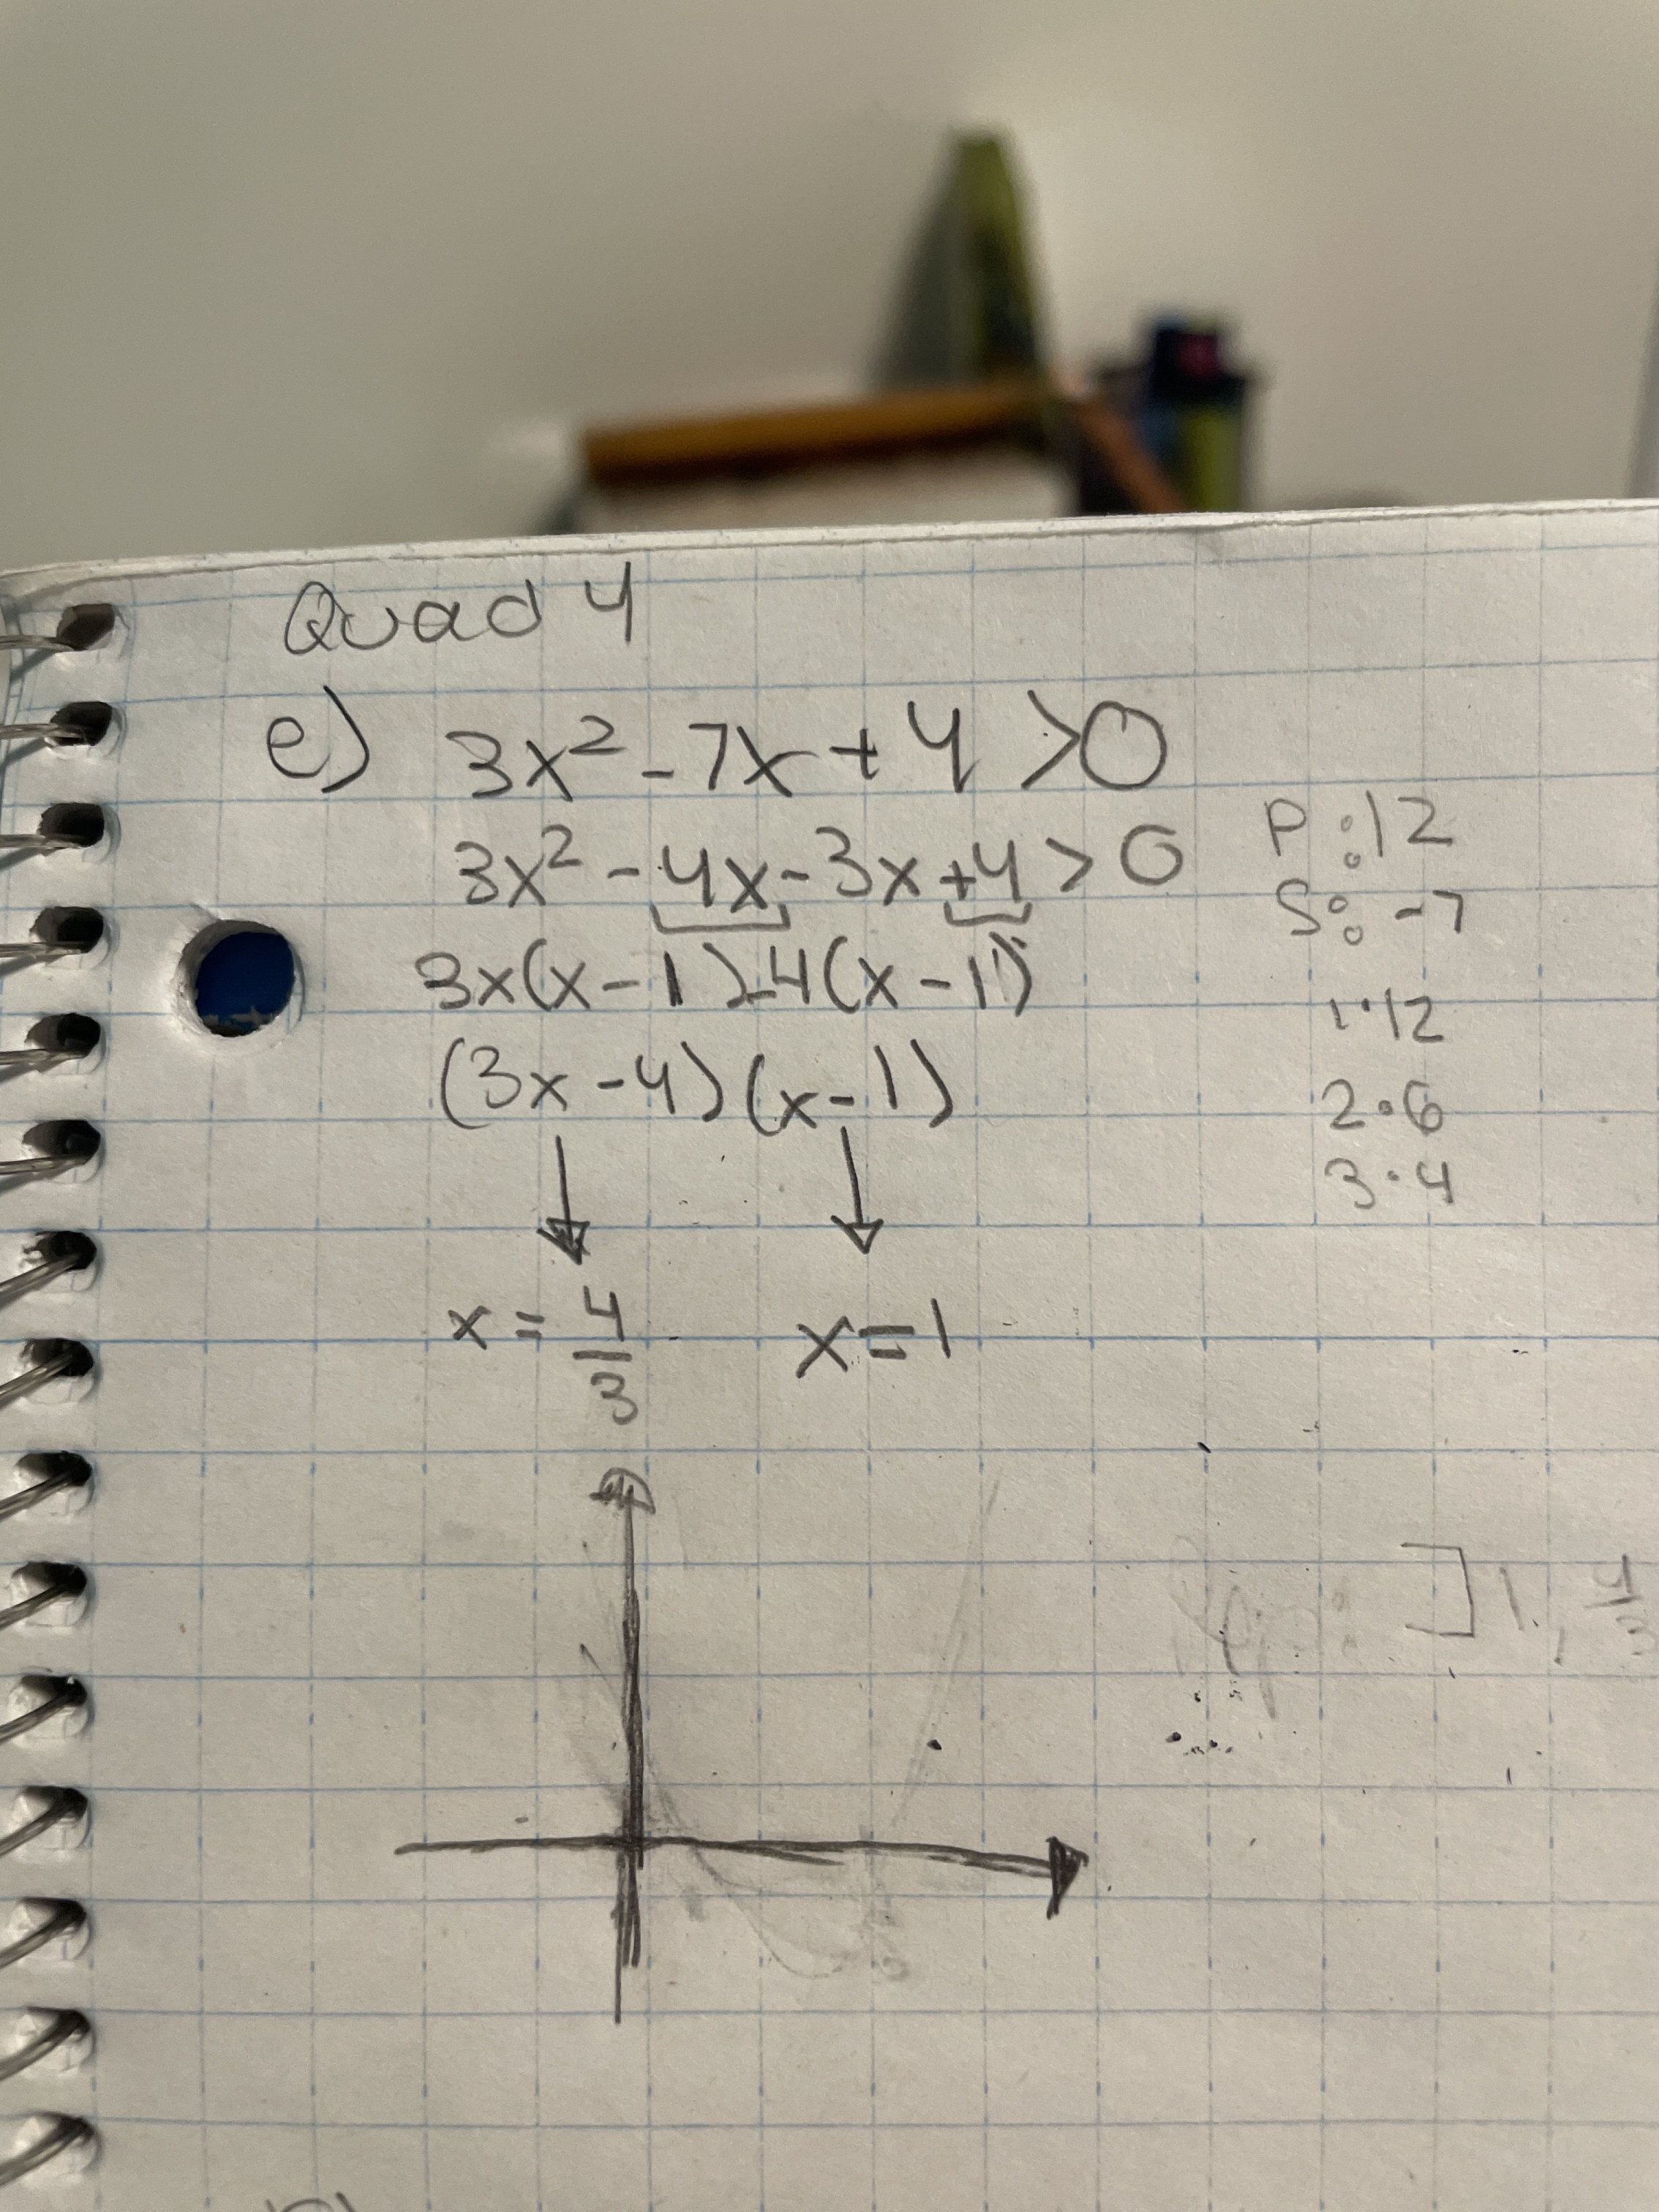 Quad 4
e) 3x² - 7x + 4 > 0
3x² - 4x - 3x + 4 > 0
P : 12
S : -7
3x(x - 1) - 4(x - 1)
1·12
(3x - 4)(x - 1)
2·6
3·4
x = 4/3 x = 1
]1, 4/3